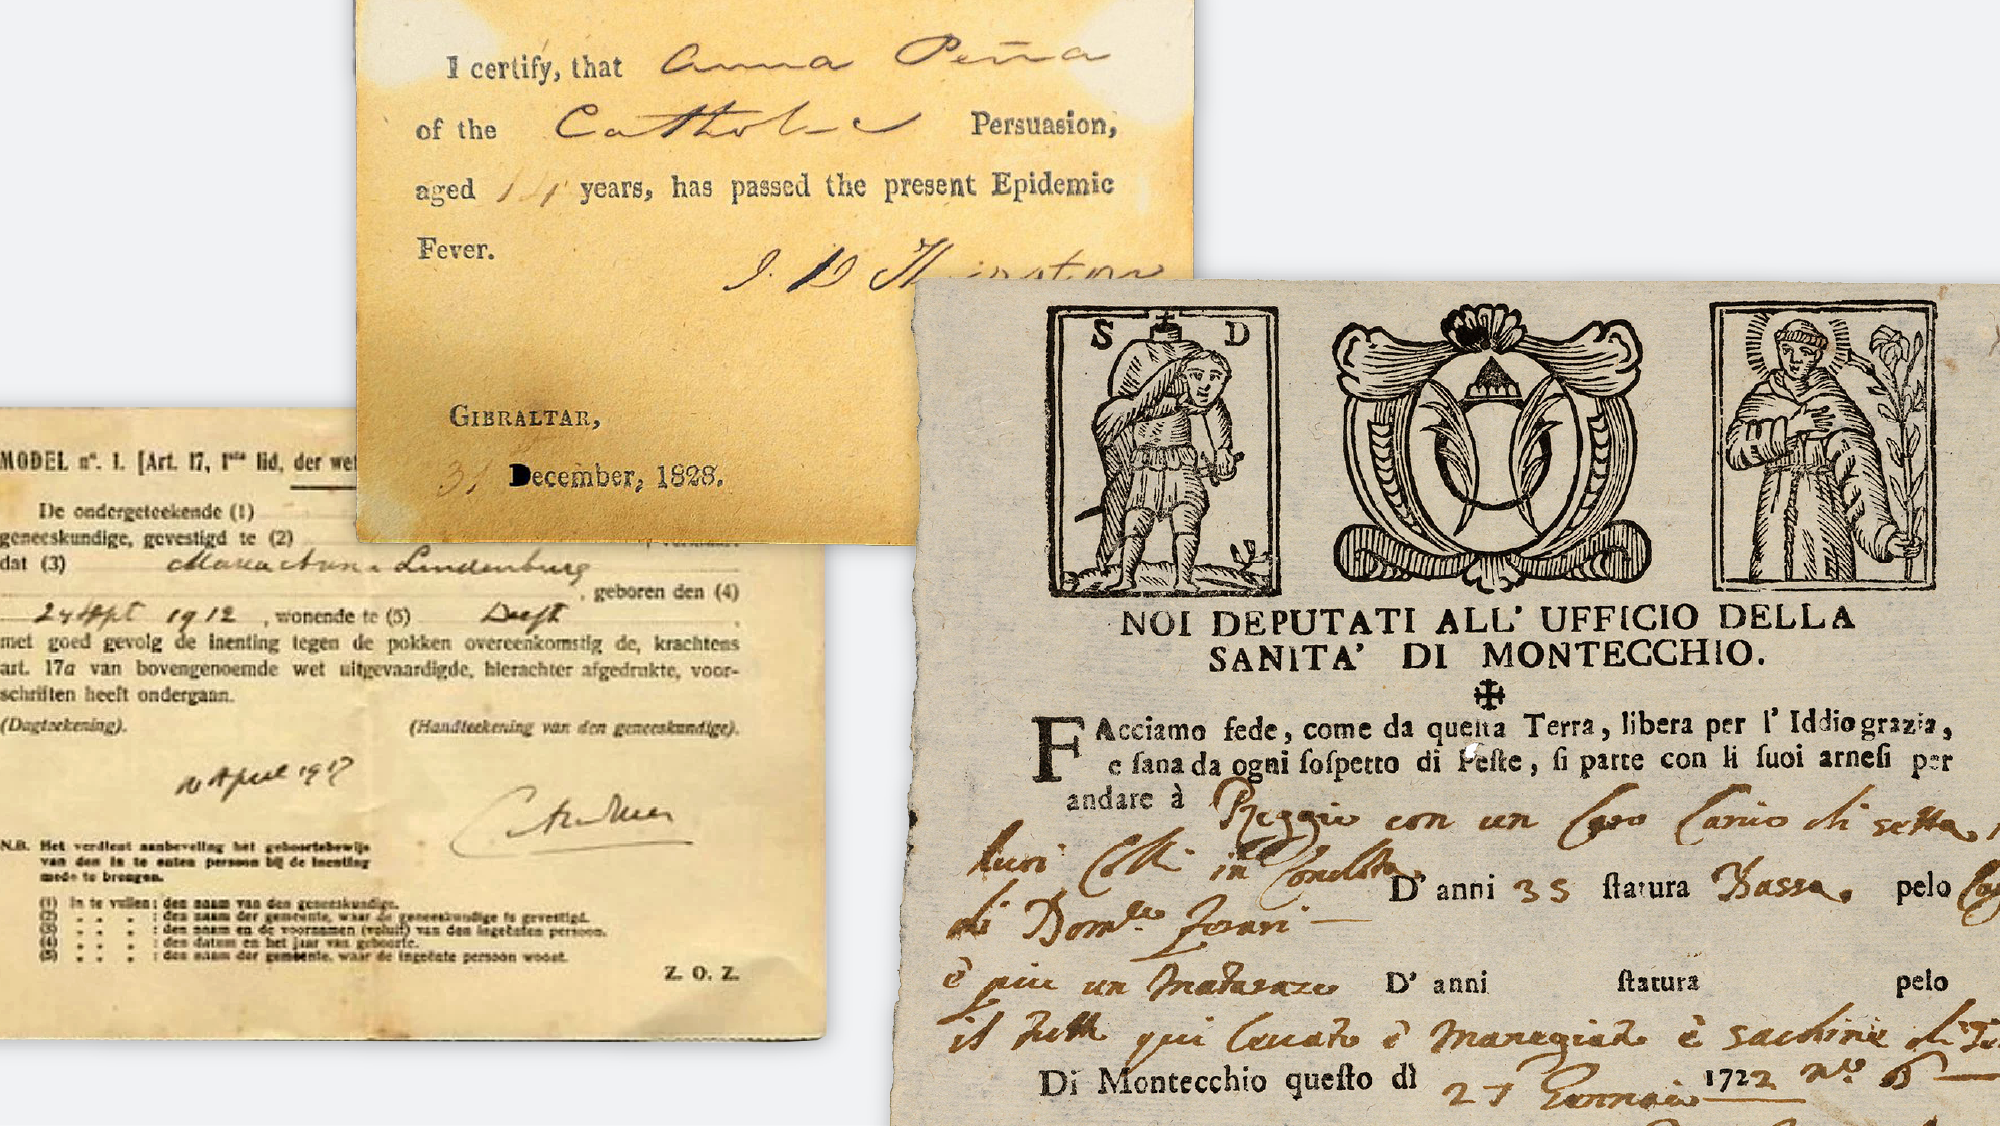 I certify, that Anna Peña
of the Catholic Persuasion,
aged 14 years, has passed the present Epidemic
Fever.
GIBRALTAR,
31 December, 1828.
MODEL nº. 1. [Art. 17, 1ste lid, der wet
De ondergeteekende (1)
geneeskundige, gevestigd te (2)
dat (3) Maria Anna Lindenburg
, geboren den (4)
24 Sept 1912, wonende te (5) Delft
met goed gevolg de inenting tegen de pokken overeenkomstig de, krachtens
art. 17a van bovengenoemde wet uitgevaardigde, hierachter afgedrukte, voor-
schriften heeft ondergaan.
(Dagteekening). (Handteekening van den geneeskundige).
April 191
N.B. Het verdient aanbeveling het geboortebewijs
van den in te enten persoon bij de inenting
mede te brengen.
(1) In te vullen: den naam van den geneeskundige.
(2) „ „ „ : den naam der gemeente, waar de geneeskundige is gevestigd.
(3) „ „ „ : den naam en de voornamen (voluit) van den ingeënten persoon.
(4) „ „ „ : den datum en het jaar van geboorte.
(5) „ „ „ : den naam der gemeente, waar de ingeënte persoon woont.
Z. O. Z.
S D
NOI DEPUTATI ALL' UFFICIO DELLA
SANITA' DI MONTECCHIO.
FAcciamo fede, come da questa Terra, libera per l' Iddio grazia,
e sana da ogni sospetto di Peste, si parte con li suoi arnesi per
andare à Reggio con un Caro Carico di setta
in Condotta
D' anni 35 statura Bassa. pelo
di
è piu un Matarazo D' anni statura pelo
il tutto qui è
Di Montecchio questo dì 27 Gennaio 1722